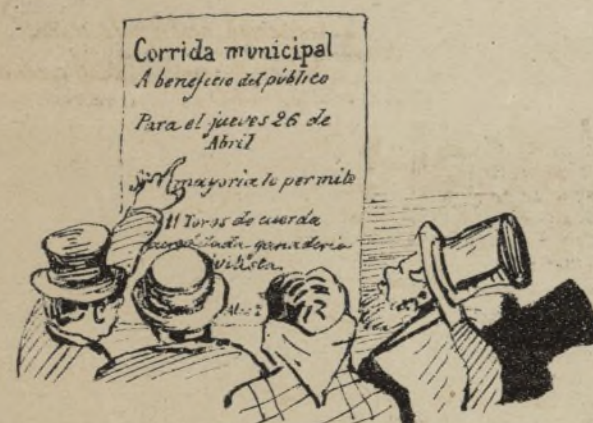 Corrida municipal
A beneficio del público
Para el jueves 26 de
Abril
Si la mayoria lo permite
11 Toros de cuerda
ganaderia